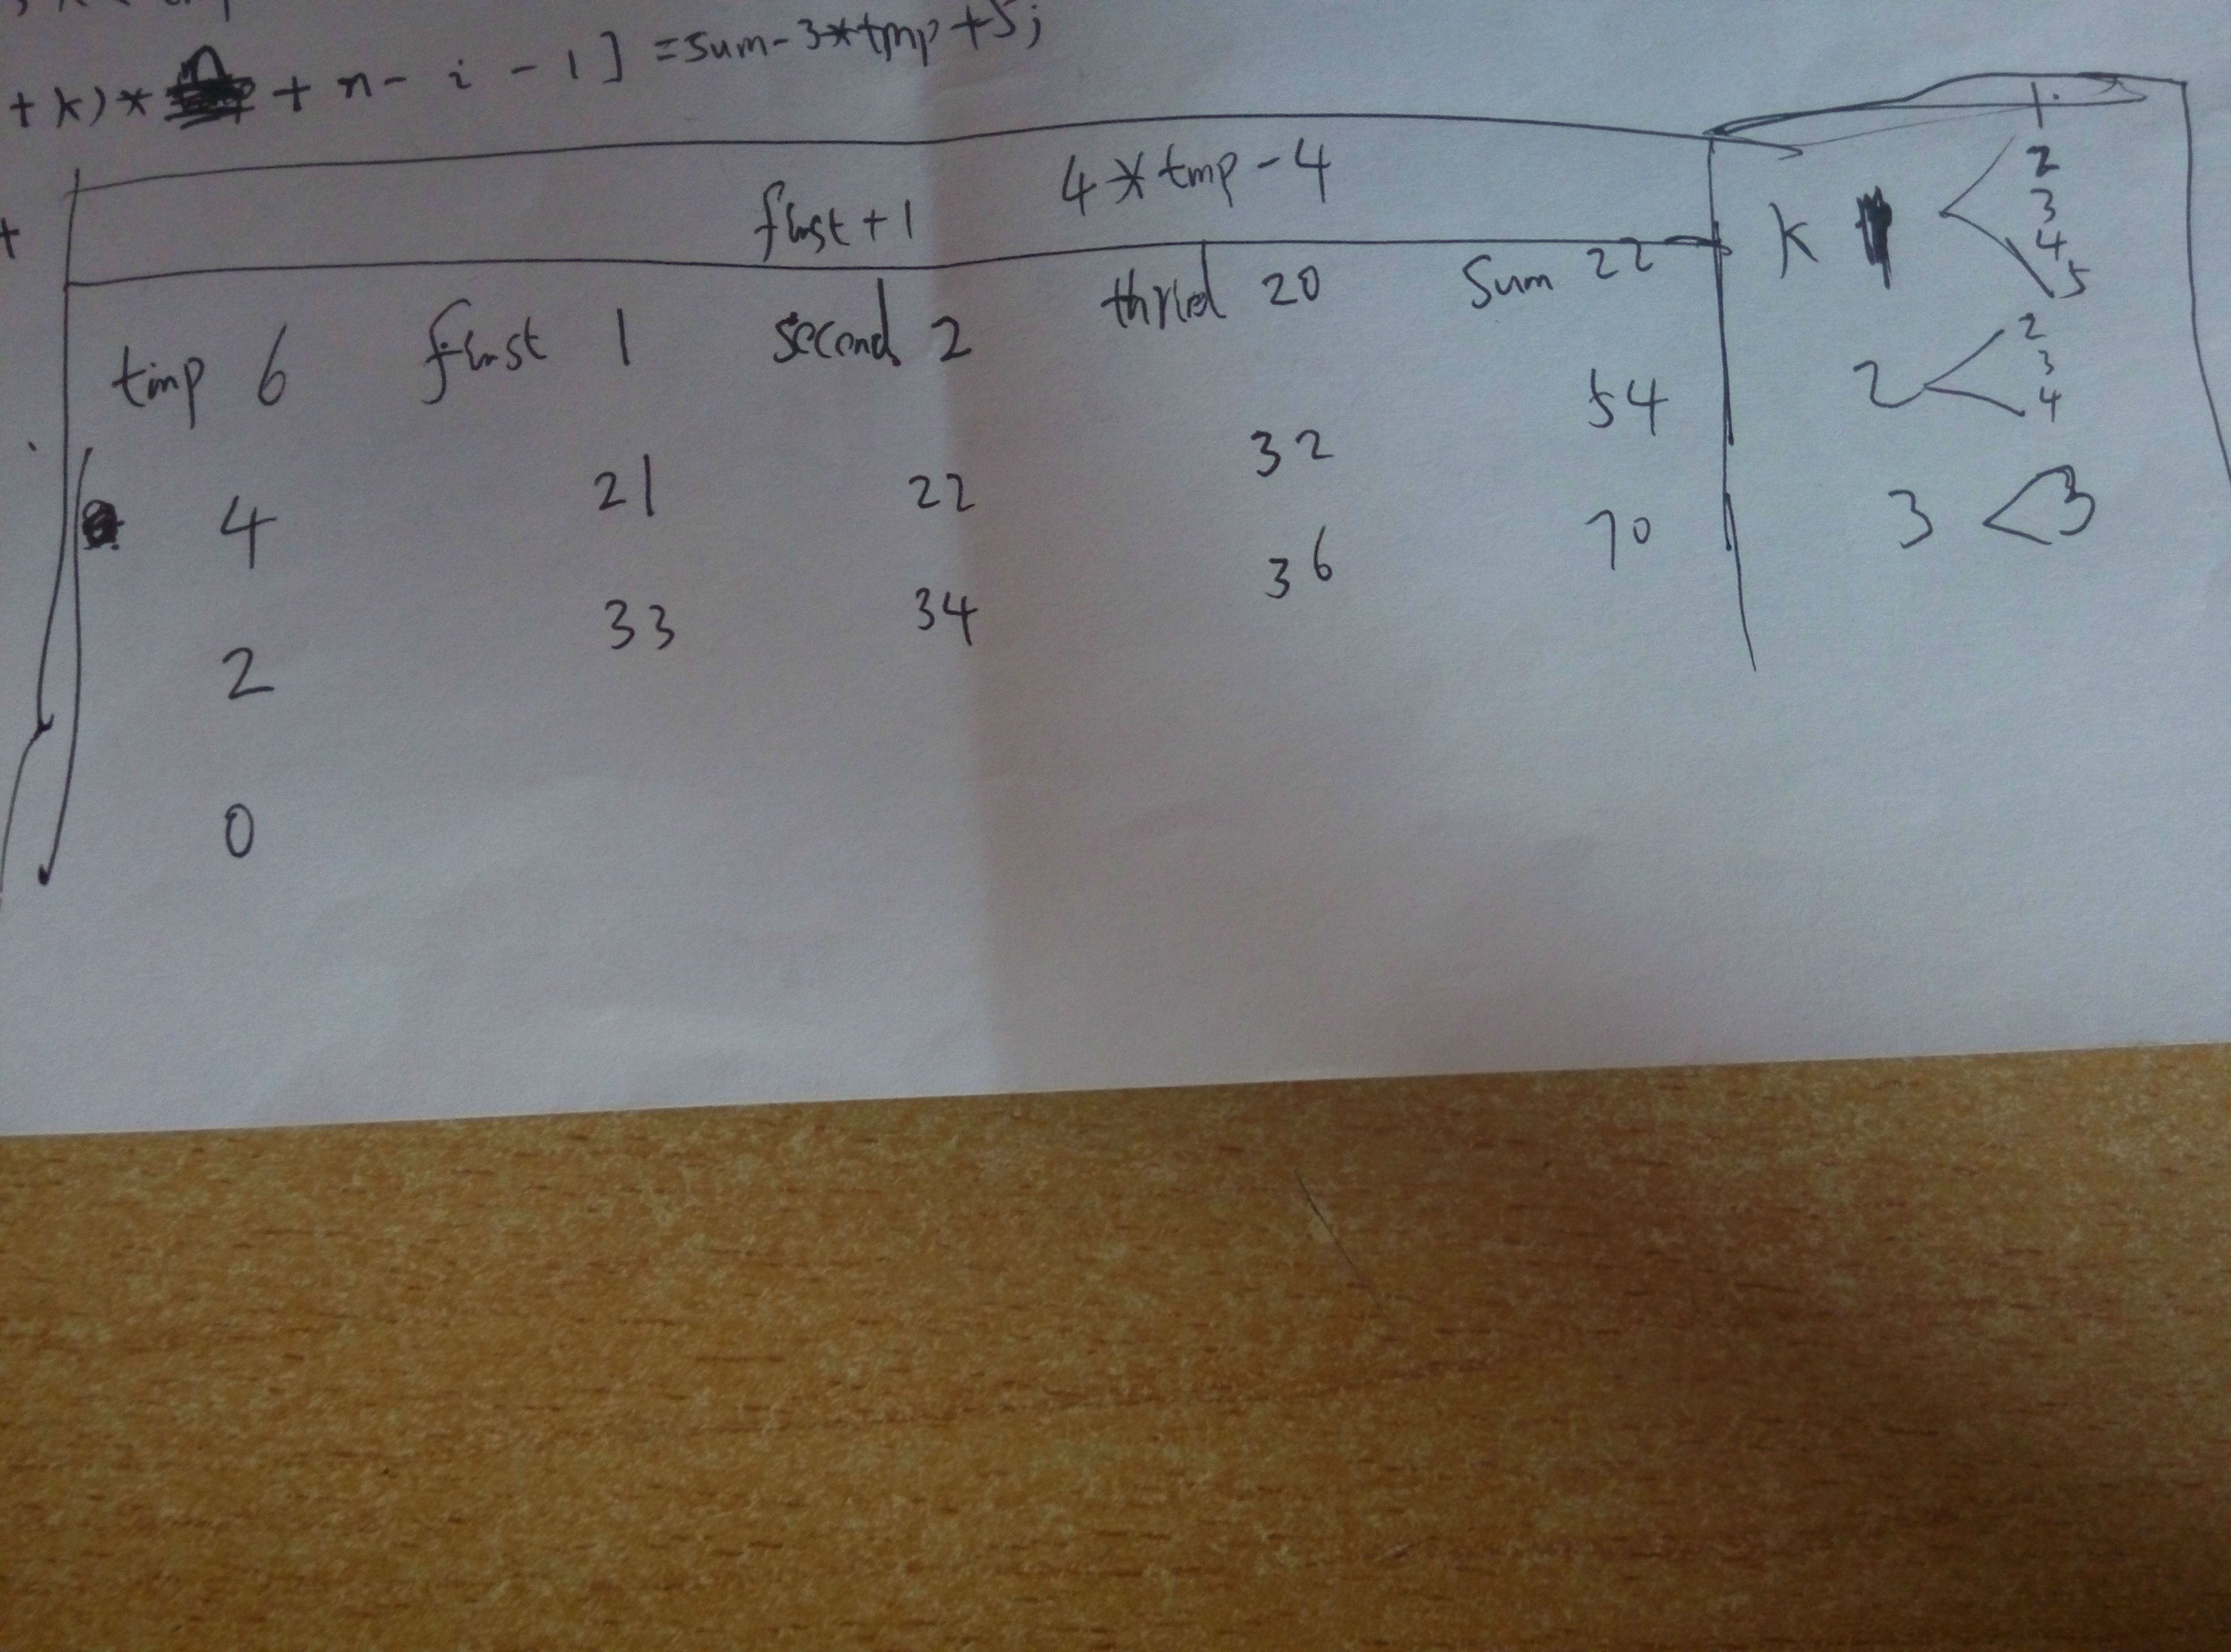 + k) * n + n - i - 1 ] = sum - 3*tmp + 5;
first + 1 4 * tmp - 4
tmp 6 first 1 second 2 thried 20 Sum 22
4 21 22 32 54
2 33 34 36 70
0
1
k 2
3
4
5
2 2
3
4
3 3